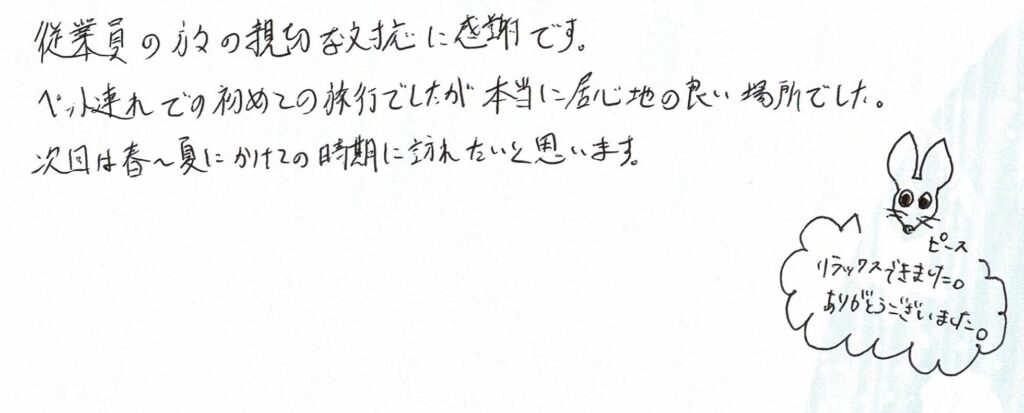 従業員の方の親切な対応に感謝です。
ペット連れでの初めての旅行でしたが本当に居心地の良い場所でした。
次回は春～夏にかけての時期に訪れたいと思います。
ピース
リラックスできました。
ありがとうございました。